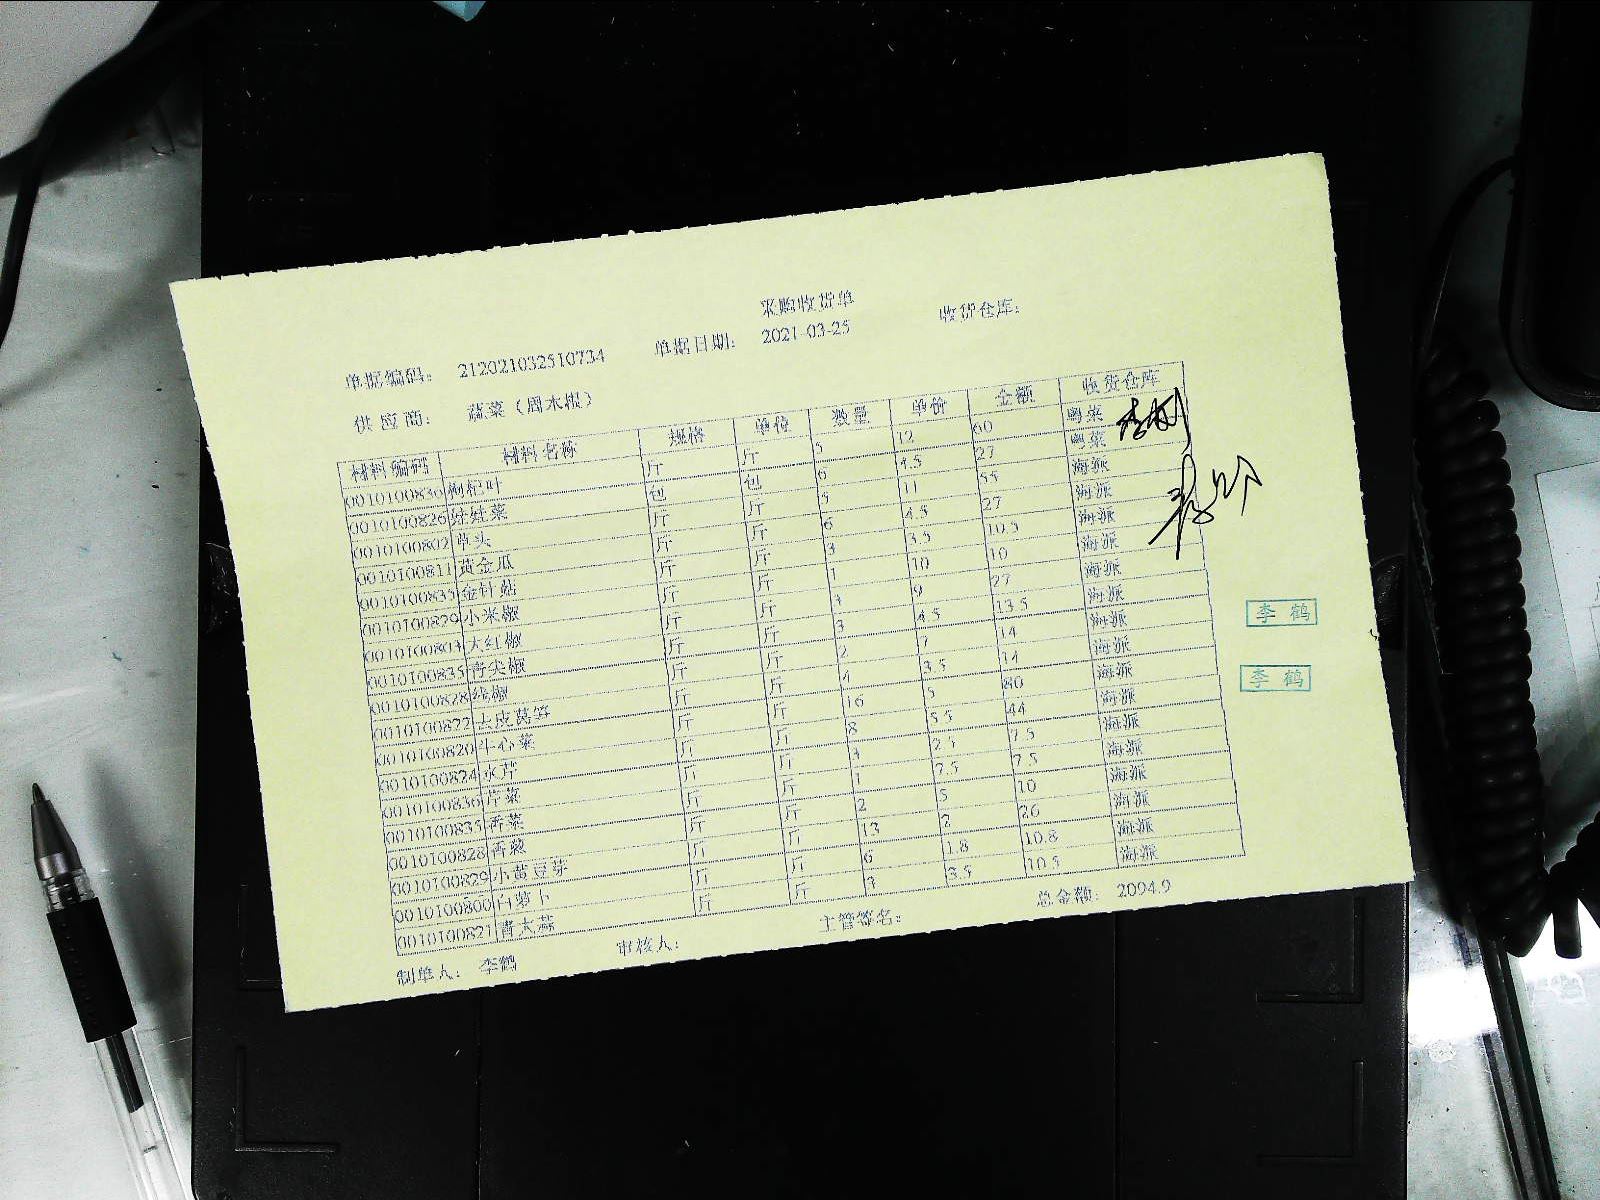 采购收货单
单据编码: 212021032510734 单据日期: 2021-03-25 收货仓库:
供应商: 蔬菜（周木根）
材料编码 材料名称 规格 单位 数量 单价 金额 收货仓库
0010100836 枸杞叶 斤 斤 5 12 60 粤菜
0010100826 娃娃菜 包 包 6 4.5 27 粤菜
0010100802 草头 斤 斤 5 11 55 海派
0010100811 黄金瓜 斤 斤 6 4.5 27 海派
0010100835 金针菇 斤 斤 3 3.5 10.5 海派
0010100829 小米椒 斤 斤 1 10 10 海派
大红椒 斤 斤 3 9 27 海派
0010100835 青尖椒 斤 斤 3 4.5 13.5 海派
0010100828 线椒 斤 斤 2 7 14 海派
0010100822 去皮莴笋 斤 斤 4 3.5 14 海派
0010100820 牛心菜 斤 斤 16 5 80 海派
0010100824 水芹 斤 斤 8 5.5 44 海派
0010100836 芹菜 斤 斤 3 2.5 7.5 海派
0010100835 香菜 斤 斤 1 7.5 7.5 海派
0010100828 香葱 斤 斤 2 5 10 海派
0010100829 小黄豆芽 斤 斤 13 2 26 海派
0010100800 白萝卜 斤 斤 6 1.8 10.8 海派
0010100821 青大蒜 斤 斤 3 3.5 10.5 海派
制单人: 李鹤 审核人: 主管签名: 总金额: 2094.9
李鹤
李鹤